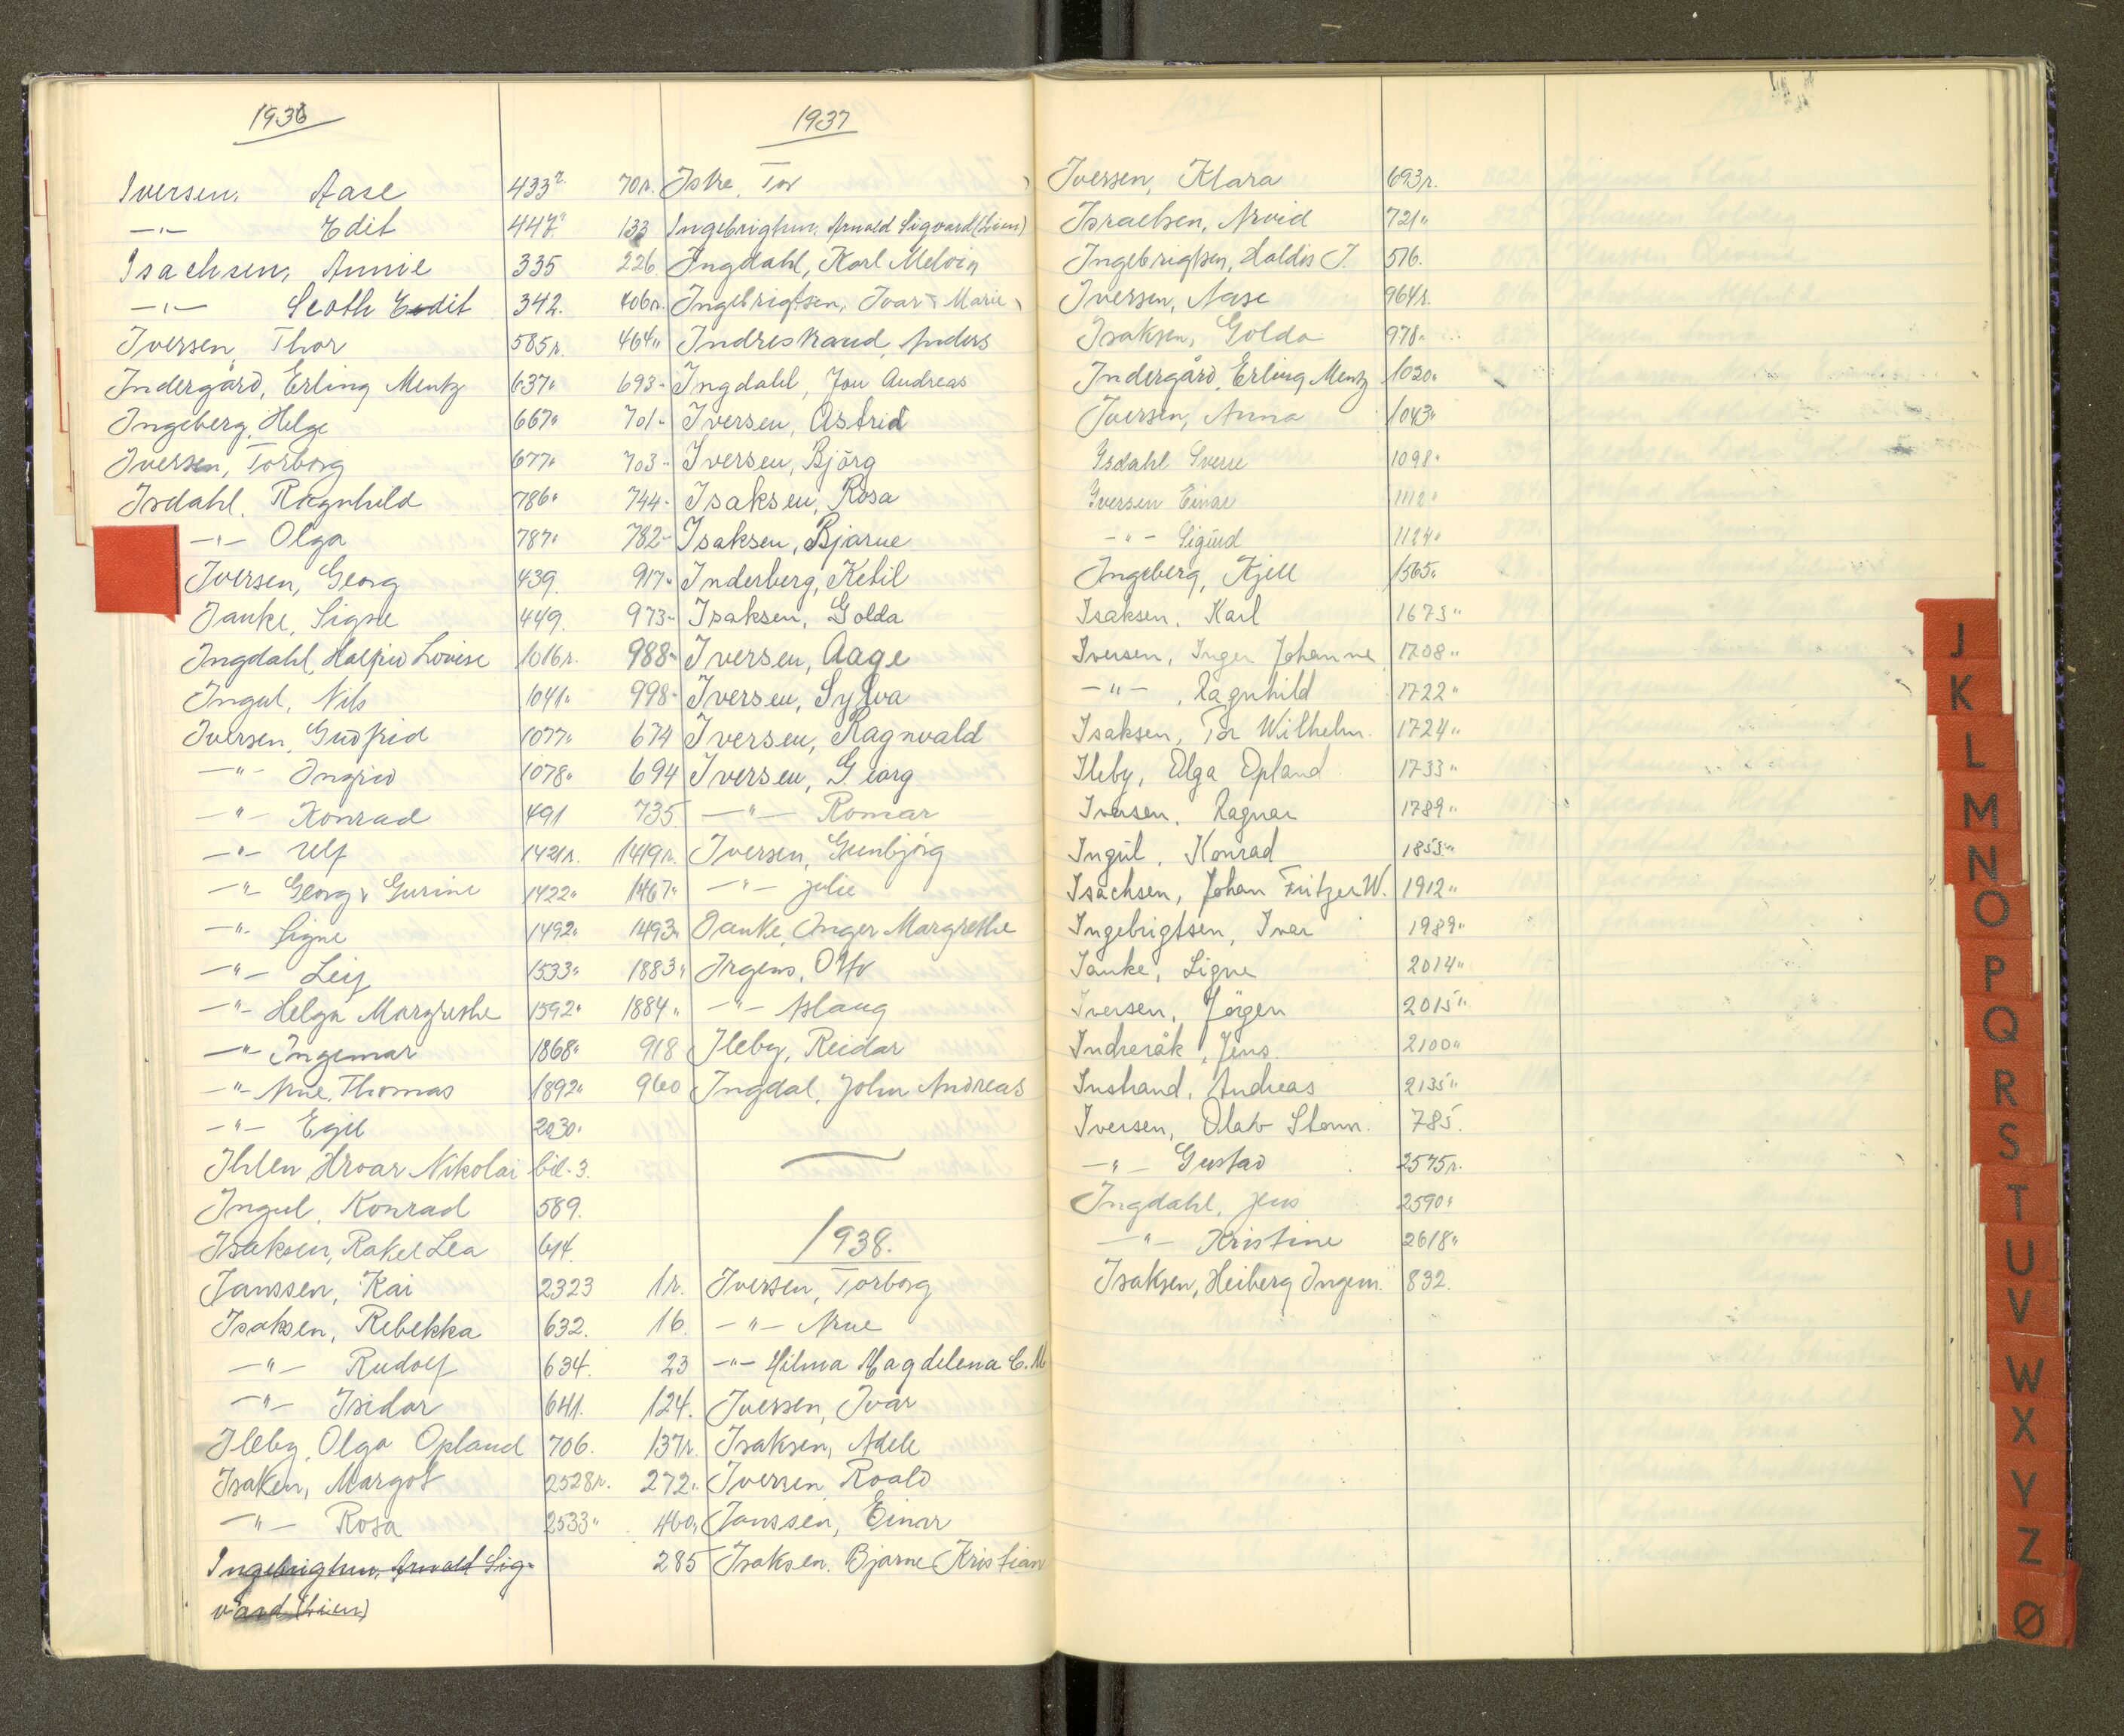 1936
Iversen, Aase 433r.
-"- Edit 447"
Isachsen, Annie 335
-"- Seoth Eedit 342.
Iversen, Thor 585r.
Indergård, Erling Mentz 637"
Ingeberg, Helge 667"
Iversen, Torborg 677"
Isdahl, Ragnhild 786"
-"- Olga 787"
Iversen, Georg 439.
Ianke, Signe 449.
Ingdahl, Halfrid Lovise 1016r.
Ingul, Nils 1041"
Iversen, Gudfrid 1077"
-"- Ingrid 1078"
-"- Konrad 491
-"- Ulf 1421r.
-"- Georg & Gurine 1422"
-"- Signe 1492"
-"- Leif 1533"
-"- Helga Margrethe 1592"
-"- Ingemar 1868"
-"- Arne, Thomas 1892"
-"- Egil 2030"
Ihlen Hroar Nikolai bil. 3.
Ingul, Konrad 589.
Isaksen, Rakel Lea 614.
Janssen, Kai 2323
Isaksen, Rebekka 632.
-"- Rudolf 634.
-"- Isidor 641.
Ileby, Olga Opland 706.
Isaken, Margot 2528r.
-"- Rosa 2533"
Ingebrigtsen, Arnald Sig-
vard (Lien)
1937
70r. Iske, Tor
133 Ingebrigtsen, Arnald Sigvard (Lien)
226. Ingdahl, Karl Melvin
406r. Ingebrigtsen, Ivar & Marie
464" Indrestrand, Anders
693" Ingdahl, Jon Andreas
701" Iversen, Astrid
703" Iversen, Bjørg
744" Isaksen, Rosa
782" Isaksen, Bjarne
917" Inderberg, Ketil
973" Isaksen, Golda
988" Iversen, Aage
998" Iversen, Sylva
674 Iversen, Ragnvald
694 Iversen, Georg
735. -"- Romar
1419r. Iversen, Gunbjørg
1467" -"- Julie
1493" Ianke, Inger Margrethe
1883" Irgens, Olfv
1884" -"- Aslaug
918 Ileby, Reidar
960 Ingdal, John Andreas
1938.
1r. Iversen, Torborg
16. -"- Arne
23 -"- Hilma Magdelena C. M
124. Iversen, Ivar
137r. Isaksen, Adele
272" Iversen, Roald
460" Janssen, Einar
285 Isaksen, Bjarne Kristian
Iversen, Klara 693r.
Israelsen, Arvid 721"
Ingebrigtsen, Haldis J. 516.
Iversen, Aase 964r.
Isaksen, Golda 978"
Indergård, Erling Mentz 1020"
Iversen, Anna 1043"
Isdahl Sverre 1098"
Iversen Einar 1112"
-"- Sigurd 1124"
Ingeberg, Kjell 1565"
Isaksen, Karl 1673"
Iversen, Inger Johanne 1708"
-"-, Ragnhild 1722"
Isaksen, Tor Wilhelm. 1724"
Ileby, Olga Opland 1733"
Iversen, Ragnar 1789"
Ingul, Konrad 1853"
Isachsen, Johan Fritzer W. 1912"
Ingebrigtsen, Ivar 1989"
Ianke, Signe 2014"
Iversen, Jørgen 2015"
Indreråk, Jens 2100"
Instrand, Andreas 2135"
Iversen, Olav Storm. 785.
-"- Gustav 2575r.
Ingdahl, Jens 2590"
-"- Kristine 2618"
Isaksen, Heiberg Ingem. 832.
J
K
L
M
N
O
P
Q
R
S
T
U
V
W
X
Y
Z
Ø